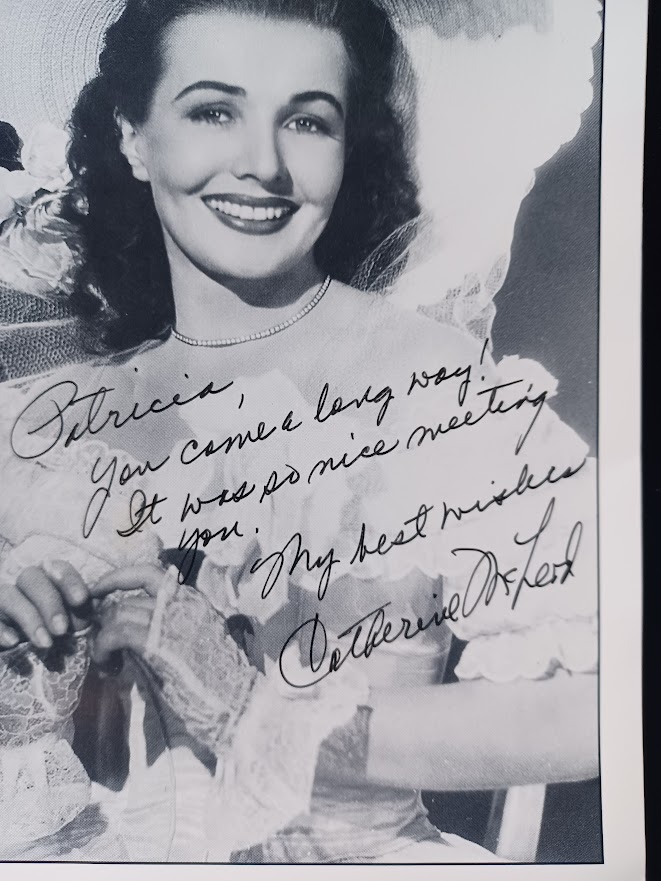 Patricia,
You came a long way!
It was so nice meeting
you.
My best wishes
Catherine McLeod